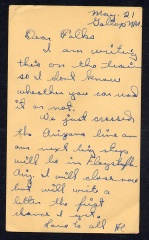 May-21
Gallup NM.
Dear Folks
I am writing
this on the train
so I dont know
whether you can read
it or not.
We just crossed
the Arizona line an
our next big stop
will be in Flagstaff
Ariz. I will close now
but will write a
letter the first
chance I get.
Love to all